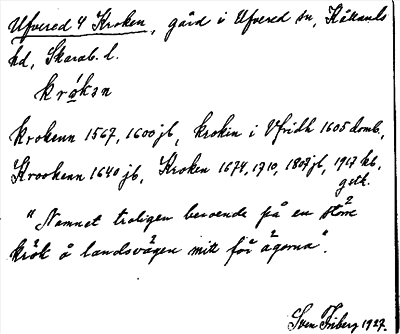 Ufvered 4 Kroken, gård i Ufvered sn, Kåkinds
hd, Skarab. l.
kråkən
Krokenn 1567, 1600 jb, kroken i Vfridh 1605 domb.,
Krookenn 1640 jb, Kroken 1674, 1710, 1807 jb, 1917 kb,
gstk.
"Namnet troligen beroende på en större
krök å landsvägen mitt för ägorna".
Sven Friberg 1927.